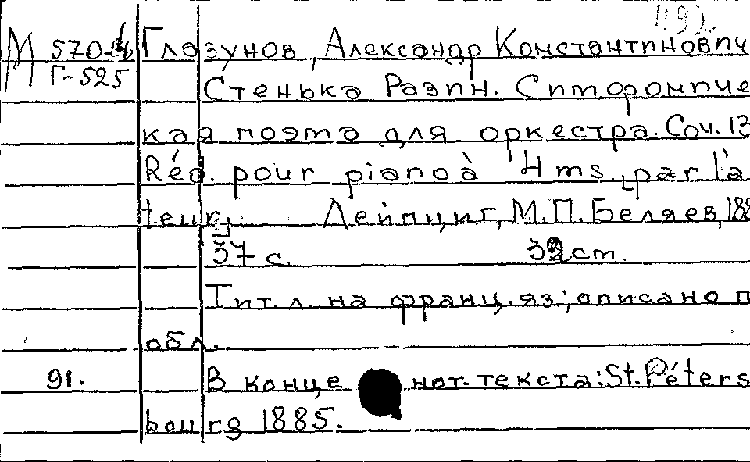 М 570-4 Глазунов, Александр Константинович
Г-525
Стенька Разин. Симфониче
кая поэма для оркестра. Соч. 13
Réd. pour piano à 4 ms. par l'a
teur.] Лейпциг, М.П. Беляев, 188
37 с. 32 ст.
Тит. л. на франц. яз; описано п
обл.
91. В конце нот. текста: St. Péters
bourg 1885.